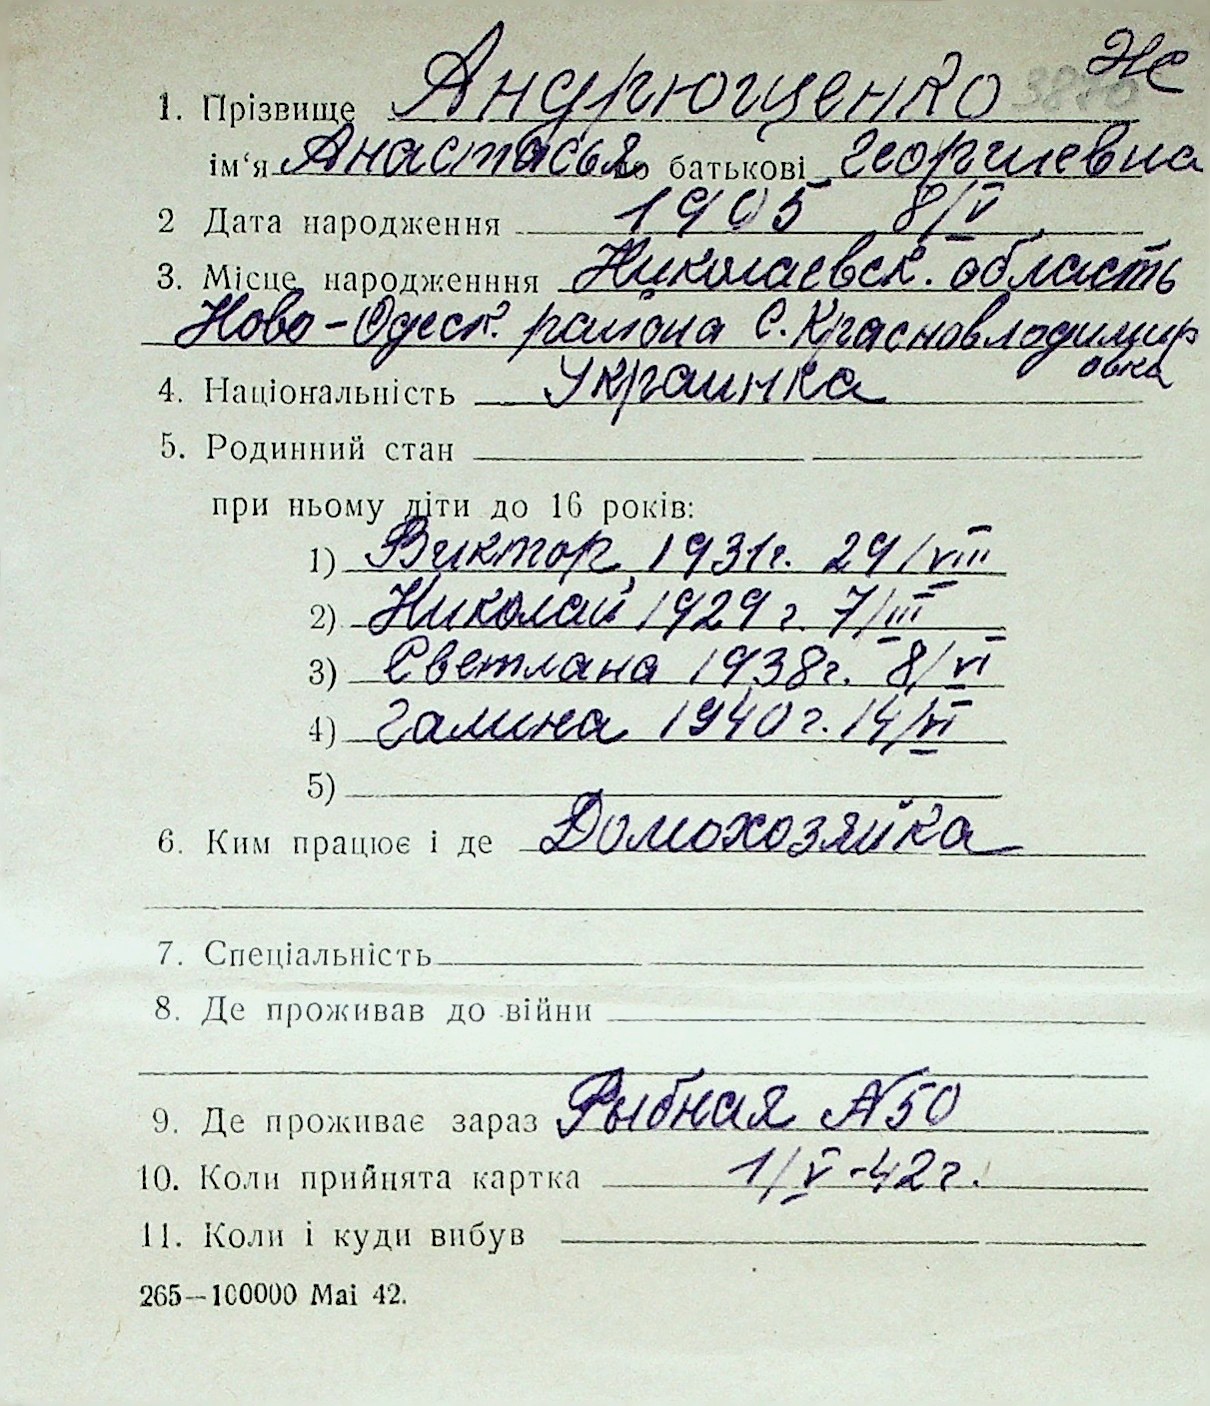 Ж
1. Прізвище Андрющенко
ім‘я Анастасья по батькові Георгиевна
2 Дата народження 1905 8/V
3. Місце народженння Николаевск. область
Ново-Одеск. района С. Красновладимир
овка
4. Національність Украинка
5. Родинний стан
при ньому діти до 16 років:
1) Виктор 1931г. 29/VIII
2) Николай 1929 г. 7/III
3) Светлана 1938г. 8/VI
4) Галина 1940 г. 14/VI
5)
6. Ким працює і де Домохозяйка
7. Спеціальність
8. Де проживав до війни
9. Де проживає зараз Рыбная №50
10. Коли прийнята картка 1/V-42г.
11. Коли і куди вибув
265—100000 Mai 42.